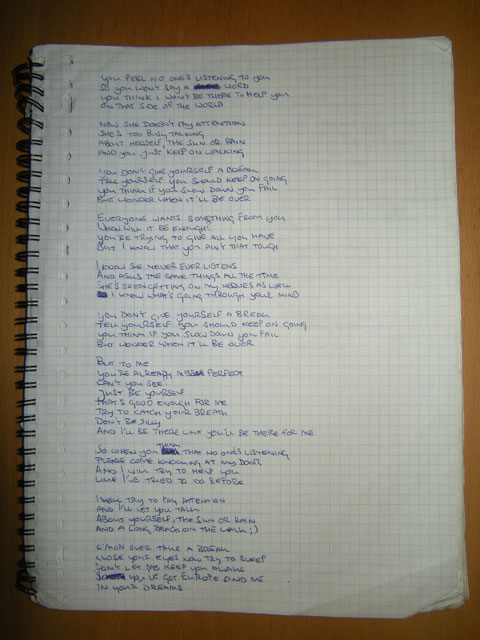 YOU FEEL NO ONE'S LISTENING TO YOU
SO YOU WON'T SAY A WORD
YOU THINK I WON'T BE THERE TO HELP YOU
ON THAT SIDE OF THE WORLD
NOW SHE DOESN'T PAY ATTENTION
SHE'S TOO BUSY TALKING
ABOUT HERSELF, THE SUN OR RAIN
AND YOU JUST KEEP ON WALKING
YOU DON'T GIVE YOURSELF A BREAK
TELL YOURSELF YOU SHOULD KEEP ON GOING
YOU THINK IF YOU SLOW DOWN YOU FAIL
BUT WONDER WHEN IT'LL BE OVER
EVERYONE WANTS SOMETHING FROM YOU
WHEN WILL IT BE ENOUGH?
YOU'RE TRYING TO GIVE ALL YOU HAVE
BUT I KNOW THAT YOU AIN'T THAT TOUGH
I KNOW SHE NEVER EVER LISTENS
AND ASKS THE SAME THINGS ALL THE TIME
SHE'S BEEN GETTING ON MY NERVES AS WELL
I KNOW WHAT'S GOING THROUGH YOUR MIND
YOU DON'T GIVE YOURSELF A BREAK
TELL YOURSELF YOU SHOULD KEEP ON GOING
YOU THINK IF YOU SLOW DOWN YOU FAIL
BUT WONDER WHEN IT'LL BE OVER
BUT TO ME
YOU'RE ALREADY PERFECT
CAN'T YOU SEE
JUST BE YOURSELF
THAT'S GOOD ENOUGH FOR ME
TRY TO CATCH YOUR BREATH
DON'T BE SILLY
AND I'LL BE THERE LIKE YOU'LL BE THERE FOR ME
SO WHEN YOU THINK THAT NO ONE'S LISTENING
PLEASE COME KNOCKING AT MY DOOR
AND I WILL TRY TO HELP YOU
LIKE I'VE TRIED TO DO BEFORE
TRY TO PAY ATTENTION
AND I'LL LET YOU TALK
ABOUT YOURSELF, THE SUN OR RAIN
AND A LONG BEACH ON THE WALK ;)
C'MON SUER TAKE A BREAK
CLOSE YOUR EYES NOW TRY TO SLEEP
DON'T LET ME KEEP YOU AWAKE
YOU'VE GOT EUROPE AND ME
IN YOUR DREAMS